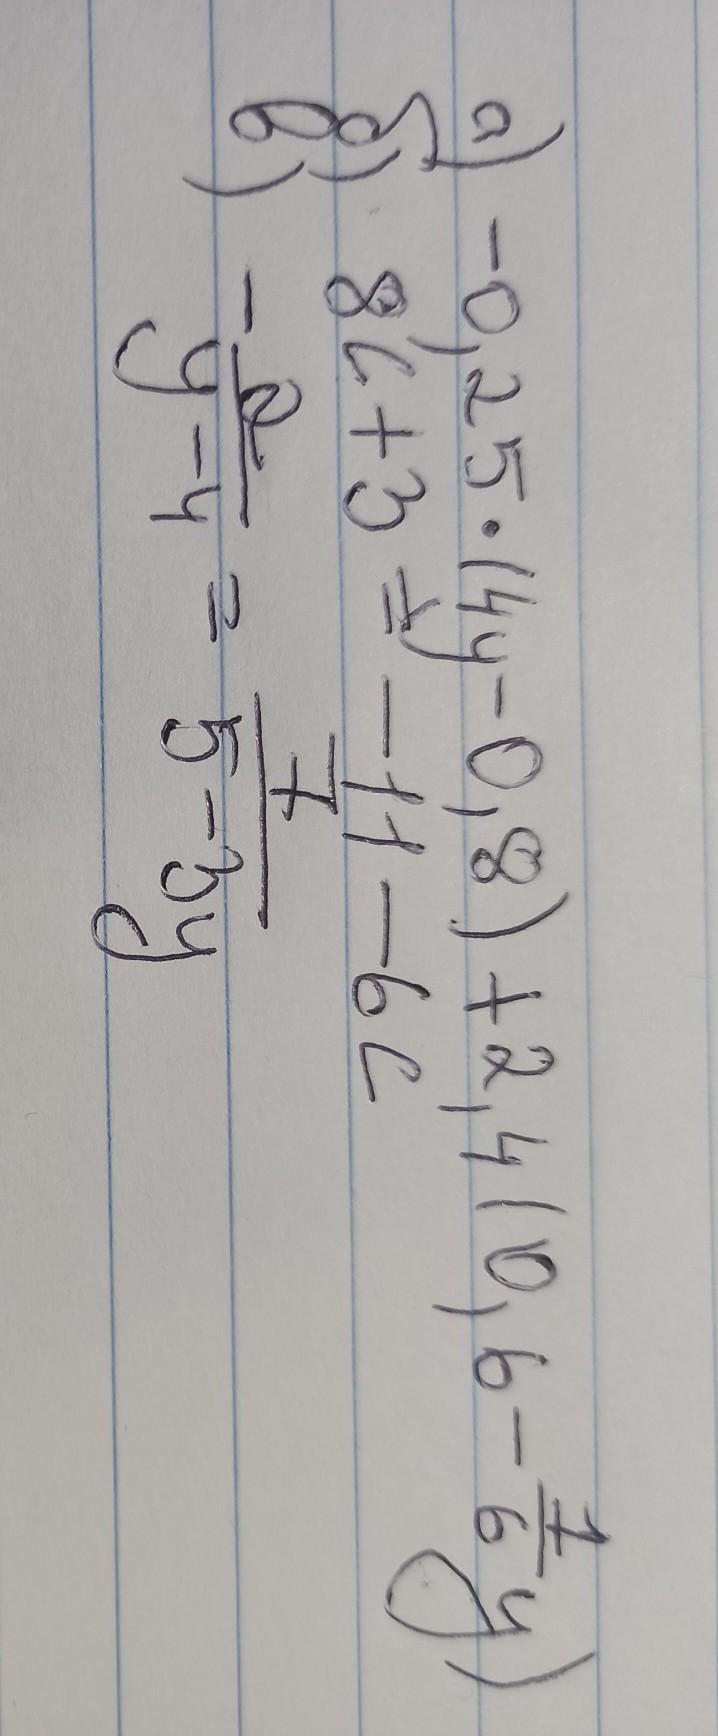 а) -0,25·(4y-0,8)+2,4(0,6-1/6y)
б) 8c+3=-11-6c
в) -2/y-4=7/5-3y